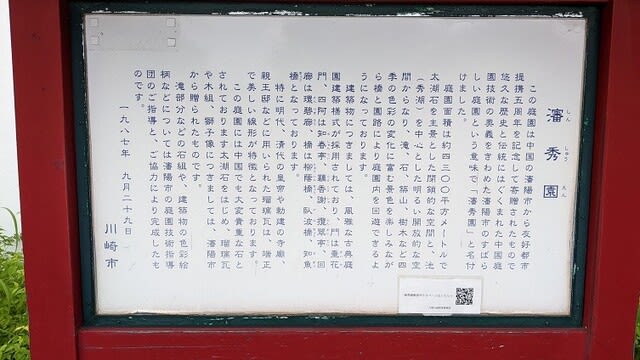 瀋秀園
しん しゅう えん
この庭園は中国の瀋陽市から友好都市
提携五周年を記念して寄贈されたもので
悠久な歴史と伝統にはぐくまれた中国庭
園技術の奥義をきわめた瀋陽市のすばら
しい庭園という意味で「瀋秀園」と名付
けました。
庭園面積は約四三〇〇平方メートルで
太湖石を主景とした閉鎖的な空間と、池
(秀湖)を中心とした明るい開放的な空
間からなり、滝、石、築山、樹木など四
季の色彩の変化に富む景色を楽しみなが
ら橋と園路により庭園内を回遊できるよ
うになっております。
建築物につきましては、風雅な古典庭
園建築様式が採用されており、門は垂花
門、四阿は知春亭、藕香謝、攬翠亭、回
廊は環碧廊、橋は柳蔭橋、臥波橋、知魚
橋となっております。
特に明代、清代の皇帝や勅建の寺廟、
親王邸などに用いられた瑠璃瓦は、端正
で美しい線形が特徴となっております。
この庭園には中国でも大変貴重な石と
されております太湖石をはじめ、瑠璃瓦
や木組、獅子像につきましては、瀋陽市
から贈られたものです。
滝部分などの石組や、建築物の色彩絵
柄などについては瀋陽市の庭園技術指導
団のご指導と、ご協力により完成したも
のです。
一九八七年 九月二十九日
川崎市